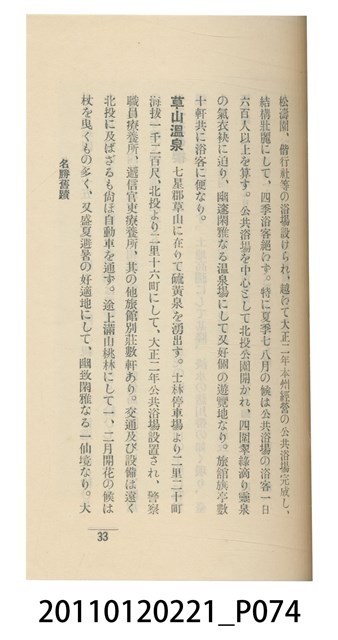 松濤園、偕行社等の浴場設けられ、越わて大正二年本州經營の公共浴場完成し、
結構壯麗にして、四季浴客絕わず。特に夏季七八月の候は公共浴場の浴客一日
六百人以上を算す。公共浴場を中心として北投公園開かれ、四圍翠綠滴り靈泉
の氣衣袂に迫り、幽邃閑雅なる温泉場にして又好個の遊覽地なり。旅館旗亭數
十軒共に浴客に便なり。
草山溫泉 七星郡草山に在りて硫黄泉を湧出す。士林停車場より二里二十町
海拔一千二百尺、北投より二里十六町にして、大正二年公共浴場設置され、警察
職員療養所、遞信官吏療養所、其の他旅館別莊數軒あり。交通及び設備は遠く
北投に及ばざるも尙ほ自動車を通ず。途上滿山桃林にして一、二月開花の候は
杖を曳くもの多く、又盛夏避暑の好適地にして、幽致閑雅なる一仙境なり。大
名勝舊蹟
33
20110120221_P074